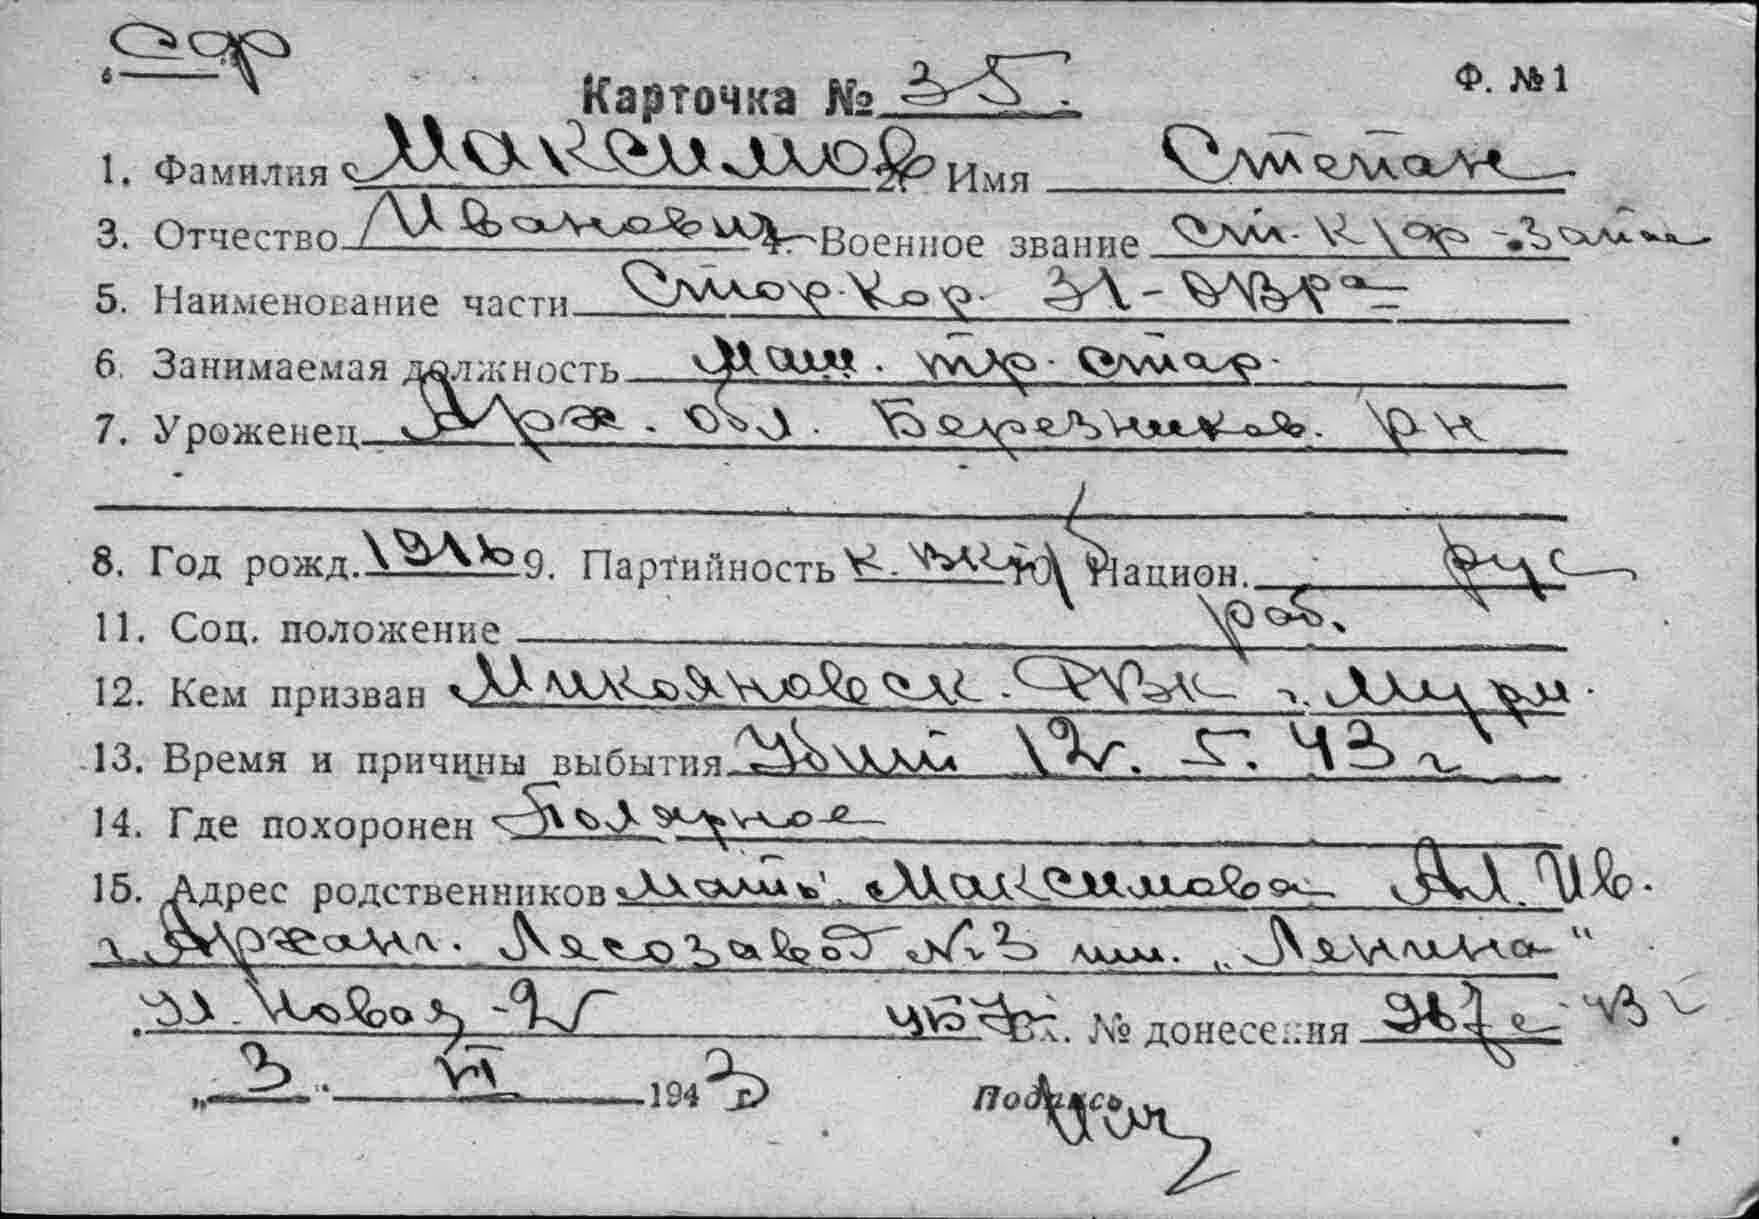 СФ
Карточка № 35. Ф. № 1
1. Фамилия Максимов 2. Имя Степан
3. Отчество Иванович 4. Военное звание ст. к/ф запаса
5. Наименование части Стор.кор. 31 - ОВРа
6. Занимаемая должность маш. тр. стар.
7. Уроженец Арх. обл. Березников. р н
8. Год рожд. 1916 9. Партийность к. ВКП/б Национ. рус
11. Соц. положение раб.
12. Кем призван Микояновск. РВК г. Мурм.
13. Время и причины выбытия Убит 12. 5. 43 г
14. Где похоронен Полярное
15. Адрес родственников мать Максимова Ал. Ив.
г. Арханг. Лесозавод № 3 им. „Ленина"
ул. Новая - 2 Вх. № донесения 967с - 43 г
„3" VI 1943 г. Подпись